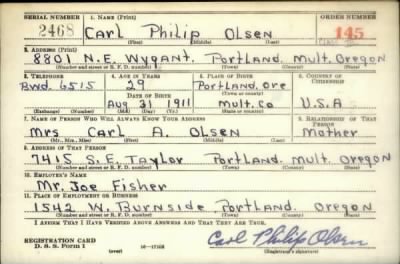 SERIAL NUMBER 1. NAME (Print) ORDER NUMBER
2468 Carl Philip Olsen 145
(First) (Middle) (Last)
2. ADDRESS (Print)
8801 N.E. Wygant. Portland Mult. Oregon
(Number and street or R. F. D. number) (Town) (County) (State)
3. TELEPHONE 4. AGE IN YEARS 5. PLACE OF BIRTH 6. COUNTRY OF CITIZENSHIP
Bwd. 6515 29 Portland, Ore
DATE OF BIRTH (Town or county)
Aug 31 1911 Mult. Co U.S.A
(Exchange) (Number) (Mo.) (Day) (Yr.) (State or country)
7. NAME OF PERSON WHO WILL ALWAYS KNOW YOUR ADDRESS 8. RELATIONSHIP OF THAT PERSON
Mrs Carl A. Olsen Mother
(Mr., Mrs., Miss) (First) (Middle) (Last)
9. ADDRESS OF THAT PERSON
7415 S.E. Taylor Portland Mult. Oregon
(Number and street or R. F. D. number) (Town) (County) (State)
10. EMPLOYER'S NAME
Mr. Joe Fisher
11. PLACE OF EMPLOYMENT OR BUSINESS
1542 W. Burnside, Portland, Oregon
(Number and street or R. F. D. number) (Town) (County) (State)
I AFFIRM THAT I HAVE VERIFIED ABOVE ANSWERS AND THAT THEY ARE TRUE.
REGISTRATION CARD
D. S. S. Form 1 (over) 16—17105 Carl Philip Olsen
(Registrant's signature)